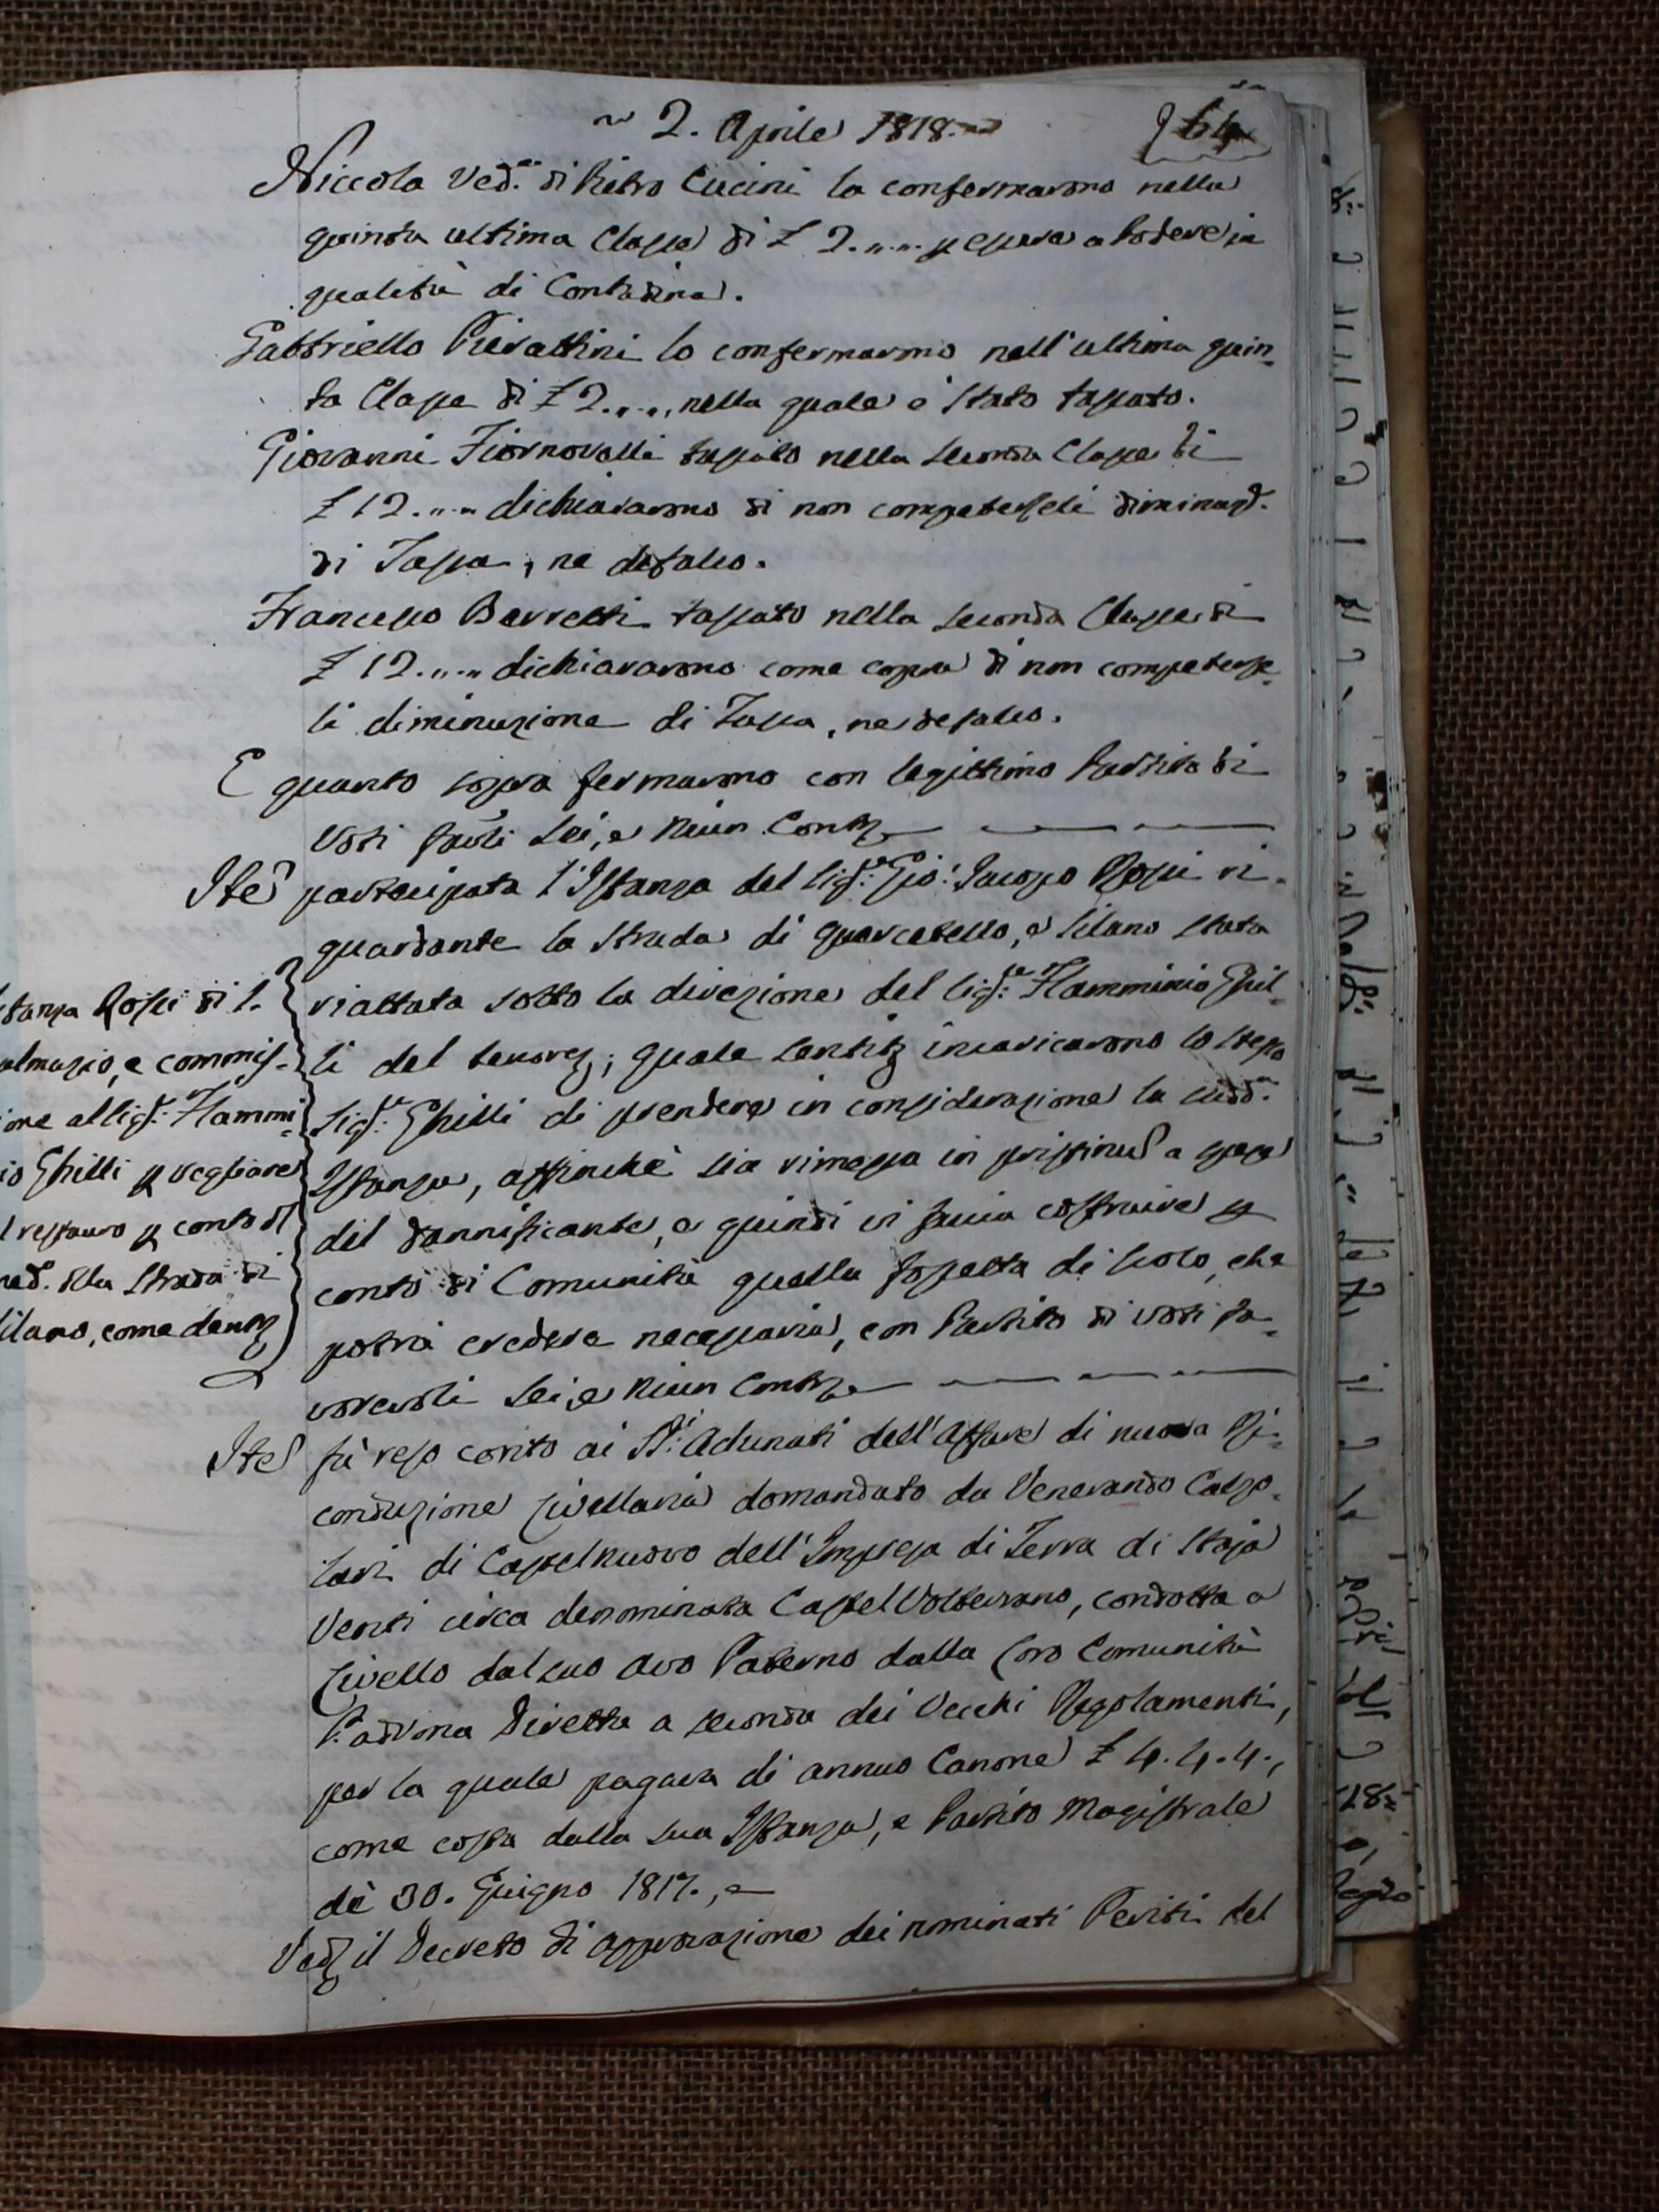 2. Aprile 1818.
64
Niccola Ved.ª di Pietro Cucini la confermarono nella
quinta ultima Classe di £ 2.„.„ p essere a Podere in
qualità di Contadina.
Gabbriello Pierattini lo confermarono nell'ultima quin=
ta Classe di £ 2.„.„, nella quale è stato tassato.
Giovanni Fiornovelli tassato nella seconda Classe di
£ 12.„.„ dichiararono di non competerseli diminuz.
di Tassa, ne defalco.
Francesco Berretti tassato nella seconda Classe di
£ 12.„.„ dichiararono come sopra di non competerse=
li diminuzione di Tassa, ne defalco.
E quanto sopra fermarono con legittimo Partito di
Voti favoli sei, e niun Cont
Ite partecipata l'Istanza del Sig.re Gio: Jacopo Rossi ri=
guardante la Strada di Quercetello, e Silano stata
riattata sotto la direzione del Sig.re Flamminio Ghil=
li del tenore; quale sentit incaricarono lo stesso
Sig.re Ghilli di prendere in considerazione la sudd.ª
Istanza, affinchè sia rimessa in pristinu a spese
del dannificante, e quindi vi faccia costruire p
conto di Comunità quella fossetta di scolo, che
potrà credere necessaria, con Partito di voti fa=
vorevoli sei, e niun Cont
stanza Rossi di S.
almazio, e commis=
ione al Sig.re Flammi=
io Ghilli p vegliare
l restauro p conto di
ed. della Strada di
ilano, come dent
Ite fù reso conto ai SS.i Adunati dell'affare di nuova Ri=
conduzione Livellaria domandato da Venerando Calzo=
lari di Castelnuovo dell'Impresa di Terra di Staja
Venti circa denominata Castel Volterrano, condotta a
Livello dal suo Avo Paterno dalla loro Comunità
Padrona Diretta a seconda dei Vecchi Regolamenti,
per la quale pagava di annuo Canone £ 4.4.4.,
come costa dalla sua Istanza, e Partito Magistrale
dè 30. Giugno 1817., e
Ved il Decreto di approvazione dei nominati Periti del